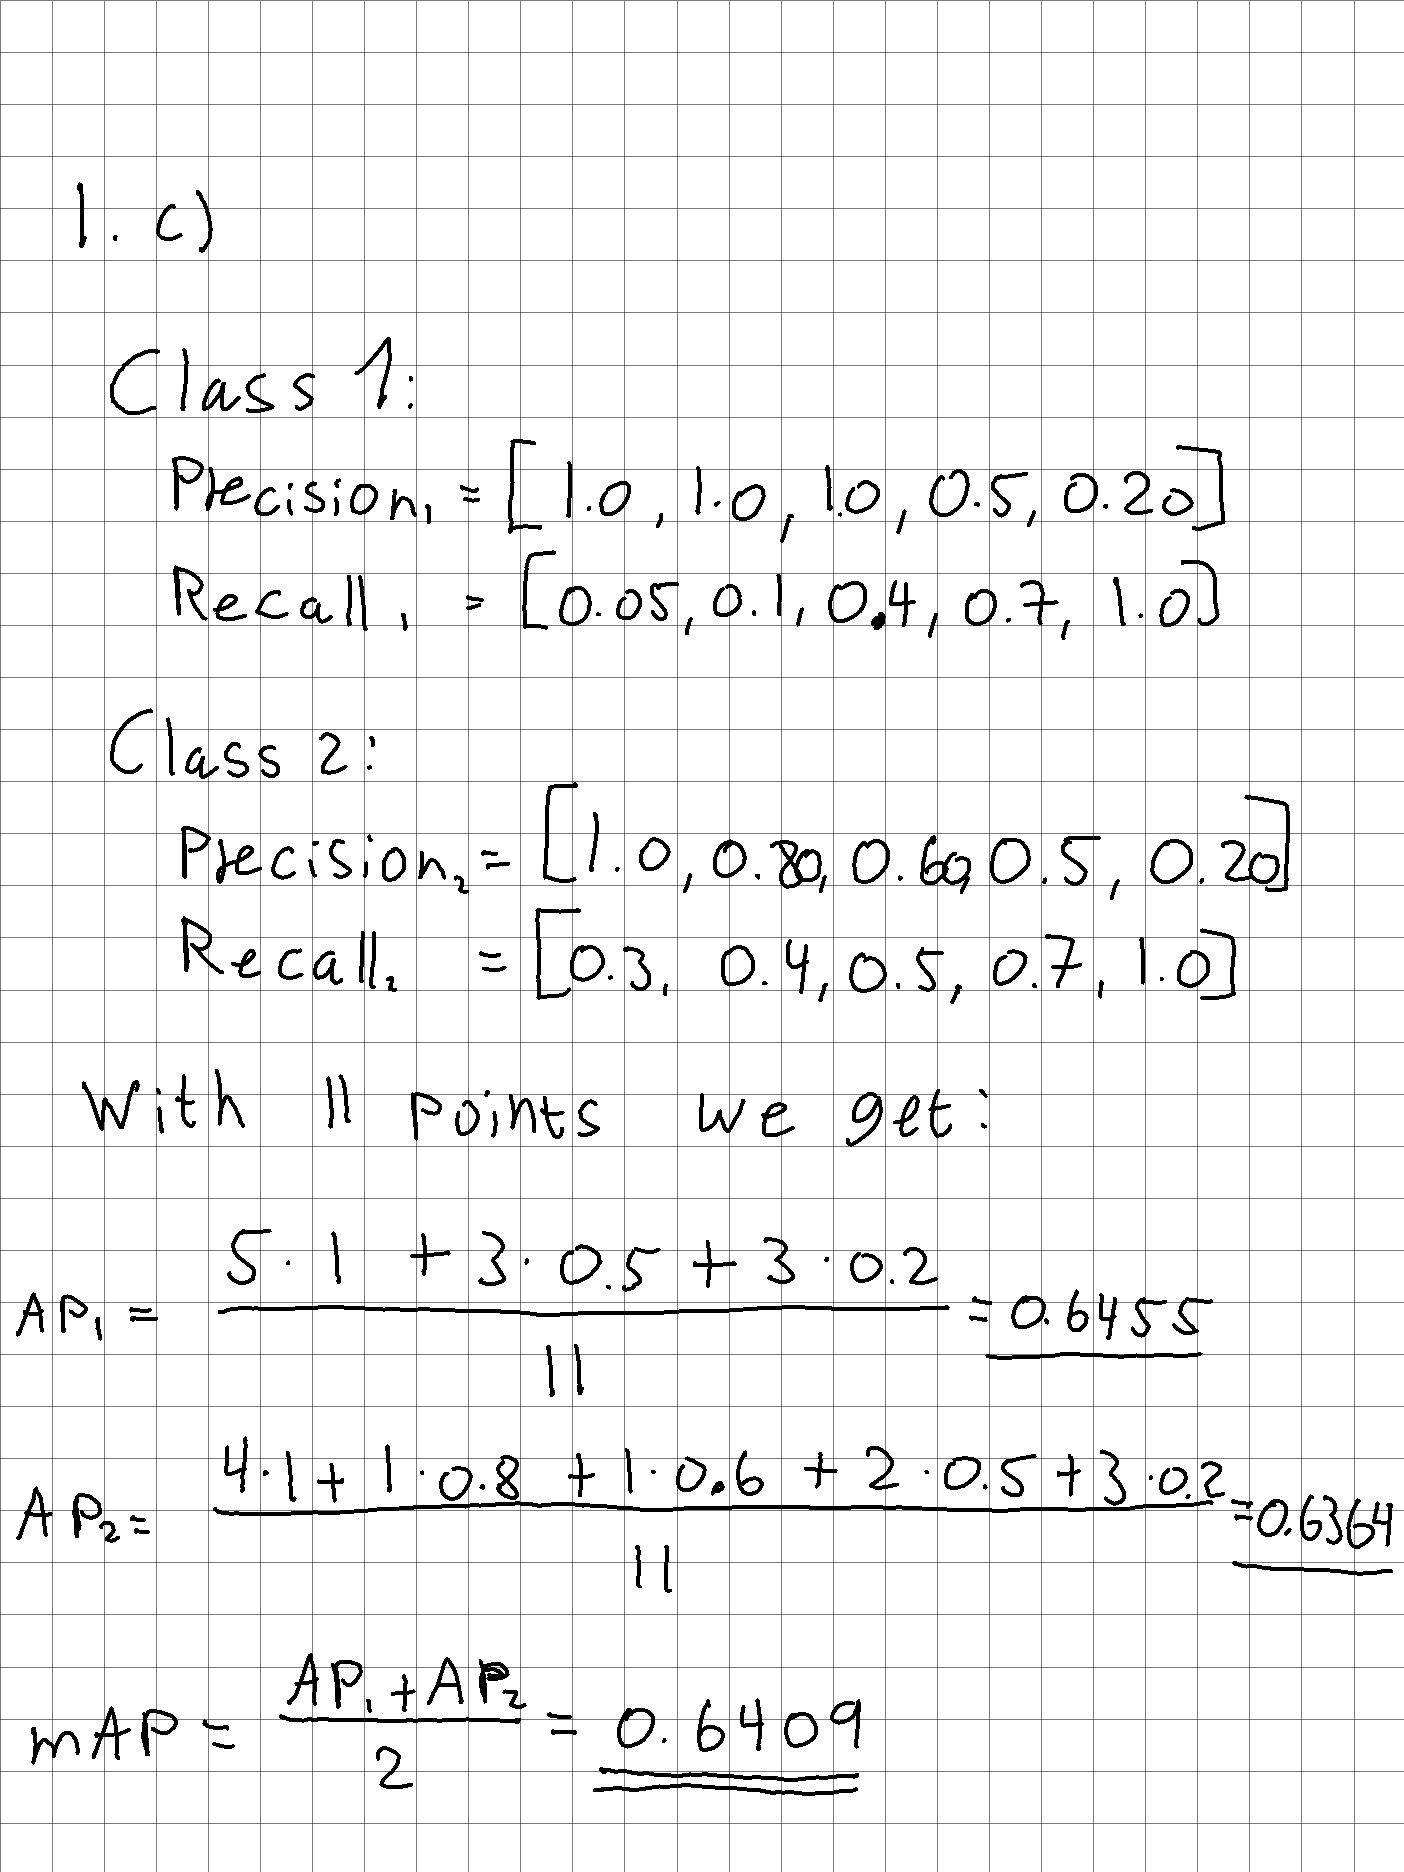 1. c)
Class 1:
Precision₁ = [1.0, 1.0, 1.0, 0.5, 0.20]
Recall₁ = [0.05, 0.1, 0.4, 0.7, 1.0]
Class 2:
Precision₂ = [1.0, 0.80, 0.60, 0.5, 0.20]
Recall₂ = [0.3, 0.4, 0.5, 0.7, 1.0]
With 11 points we get:
AP₁ = (5·1 + 3·0.5 + 3·0.2) / 11 = 0.6455
AP₂ = (4·1 + 1·0.8 + 1·0.6 + 2·0.5 + 3·0.2) / 11 = 0.6364
mAP = (AP₁ + AP₂) / 2 = 0.6409